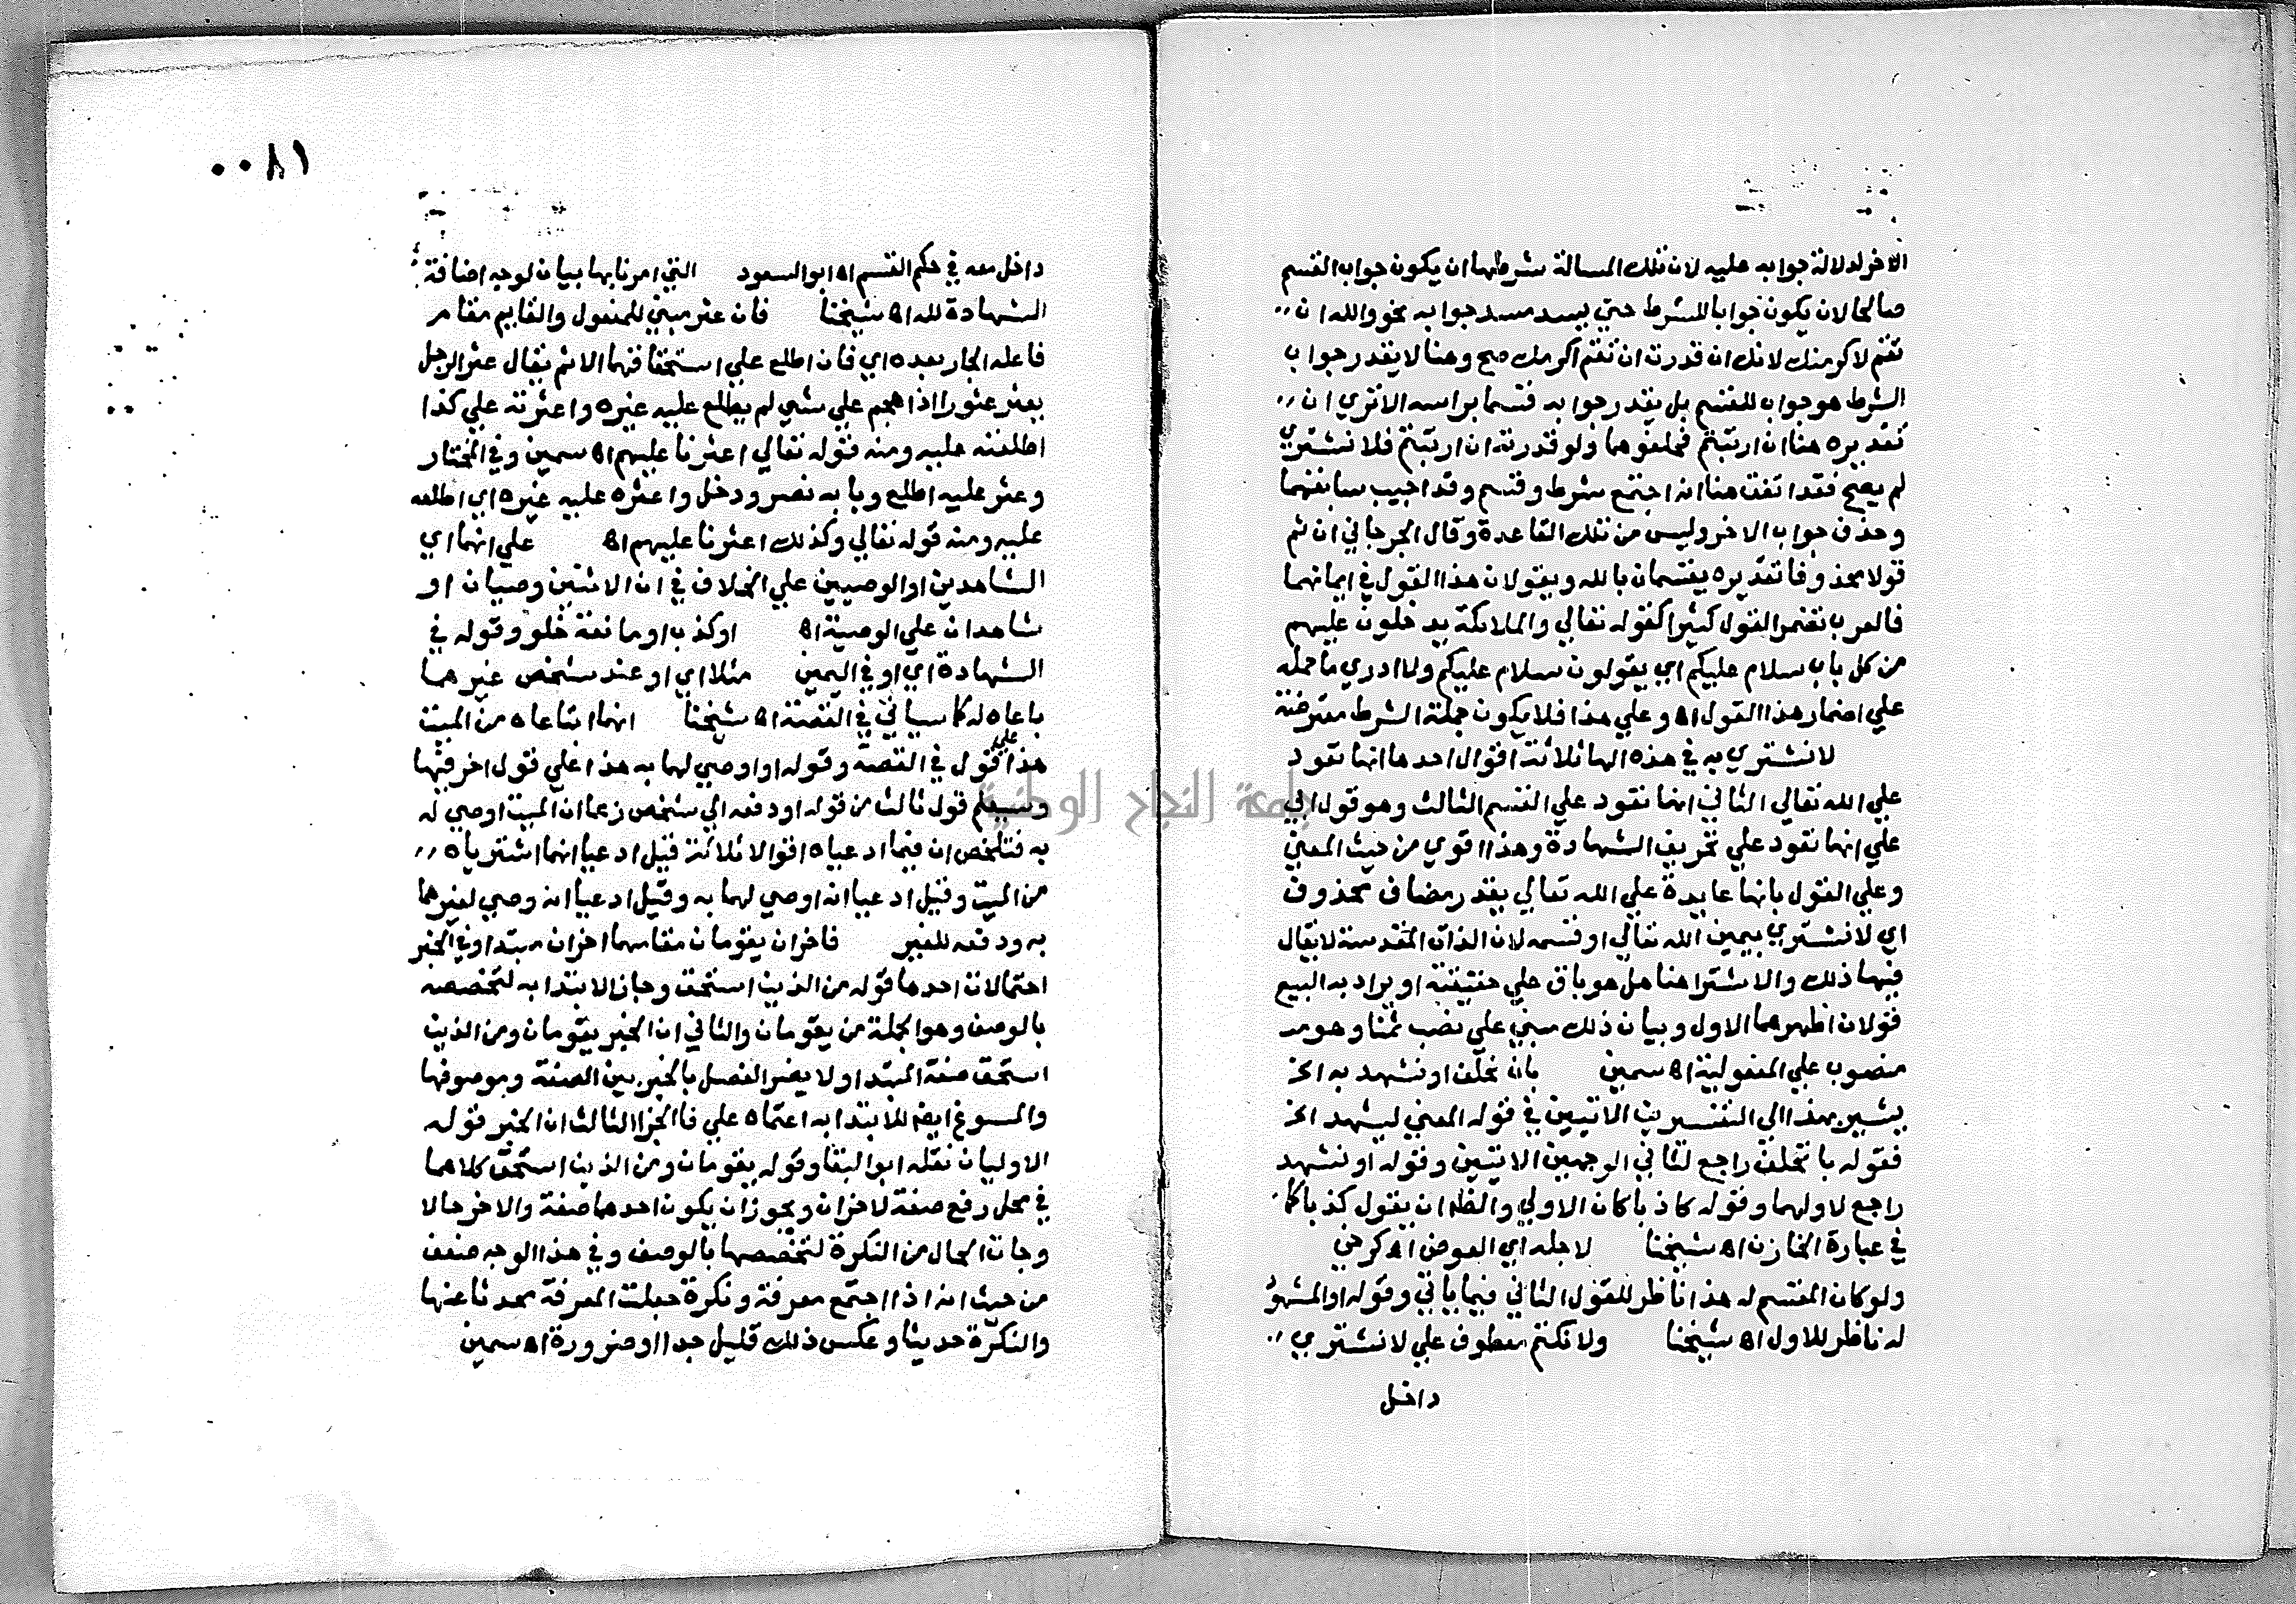 الاخر لدلالة جوابه عليه لان تلك المسالة شرطها ان يكون جواب القسم
صالحا لان يكون جوابا للشرط حتي يسد مسد جوابه نحو والله ان
تقم لاكرمنك لانك ان قدرت ان تقم اكرمك صح وهنا لا يقدر جواب
الشرط هو جواب للقسم بل يقدر جوابه قسما براسه الا تري ان
تقديره هنا ان ارتبتم فحلفوهما ولو قدرته ان ارتبتم فلا نشتري
لم يصح فقد اتفق هنا انه اجتمع شرط وقسم وقد اجيب سابقهما
وحذف جواب الاخر وليس من تلك القاعدة وقال الجرجاني ان ثم
قولا محذوفا تقديره يقسمان بالله ويقولان هذا القول في ايمانهما
فالعرب تضمر القول كثيرا كقوله تعالي والملائكة يدخلون عليهم
من كل باب سلام عليكم اي يقولون سلام عليكم ولا ادري ما حمله
علي اضمار هذا القول اه وعلي هذا فلا يكون جملة الشرط معترضة
لا نشتري به في هذه الها ثلاثة اقوال احدها انها تعود
علي الله تعالي الثاني انها تعود علي القسم الثالث وهو قول ابي
علي انها تعود علي تحريف الشهادة وهذا اقوي من حيث المعني
وعلي القول بانها عايدة علي الله تعالي يقدر مضاف محذوف
اي لا نشتري بيمين الله تعالي او قسمه لان الذات المقدسة لا يقال
فيها ذلك والاشترا هنا هل هو باق علي حقيقته او يراد به البيع
قولان اظهرهما الاول وبيان ذلك مبني علي نصب ثمنا وهو
منصوب علي المفعولية اه سمين بان نحلف او نشهد به الخ
يشير بهذا الي التفسيرين الاتيين في قوله المعني ليشهد الخ
فقوله بان نحلف راجع لثاني الوجهين الاتيين وقوله او نشهد
راجع لاولهما وقوله كاذبا كان الاولي والظ ان يقول كذبا كما
في عبارة الخازن اه شيخنا لاجله اي العوض اه كرخي
ولو كان المقسم له هذا ناظر للقول الثاني فيما ياتي وقوله او المشهود
له ناظر للاول اه شيخنا ولا نكتم معطوف علي لا نشتري
داخل
٠٠٨١
داخل معه في حكم القسم اه ابو السعود التي امرنا بها بيان لوجه اضافة
الشهادة لله اه شيخنا فان عثر مبني للمفعول والقايم مقام
فاعله الجار بعده اي فان اطلع علي استحقاقهما الاثم يقال عثر الرجل
يعثر عثورا اذا هجم علي شي لم يطلع عليه غيره واعثرته علي كذا
اطلعته عليه ومنه قوله تعالي اعثرنا عليهم اه سمين وفي المختار
وعثر عليه اطلع وبابه نصر ودخل واعثره عليه غيره اي اطلعه
عليه ومنه قوله تعالي وكذلك اعثرنا عليهم اه علي انهما اي
الشاهدين او الوصيين علي الخلاف في ان الاثنين وصيان او
شاهدان علي الوصية اه او كذب او مانعة خلو وقوله في
الشهادة اي او في اليمين مثلا اي او عند شخص غيرهما
باعاه له كما سياتي في القصة اه شيخنا انهما ابتاعاه من الميت
هذا علي قول في القصة وقوله او اوصي لهما به هذا علي قول اخر فيها
وسيعلم قول ثالث من قوله او دفعه الي شخص زعما ان الميت اوصي له
به فتلخص ان فيما ادعياه اقوالا ثلاثة قيل ادعيا انهما اشترياه
من الميت وقيل ادعيا انه اوصي لهما به وقيل ادعيا انه وصي لغيرهما
به ودفعه للغير فاخران يقومان مقامهما اخران مبتدا وفي الخبر
احتمالات احدها قوله من الذين استحق وجاز الابتدا به لتخصصه
بالوصف وهو الجملة من يقومان والثاني ان الخبر يقومان ومن الذين
استحق صفة المبتدا ولا يضر الفصل بالخبر بين الصفة وموصوفها
والمسوغ ايضا للابتدا به اعتماده علي فا الجزا الثالث ان الخبر قوله
الاوليان نقله ابو البقا وقوله يقومان ومن الذين استحق كلاهما
في محل رفع صفة لاخران ويجوز ان يكون احدهما صفة والاخر حالا
وجات الحال من النكرة لتخصصها بالوصف وفي هذا الوجه ضعف
من حيث انه اذا اجتمع معرفة ونكرة جعلت المعرفة محدثا عنها
والنكرة حديثا وعكس ذلك قليل جدا او ضرورة اه سمين
جامعة النجاح الوطنية